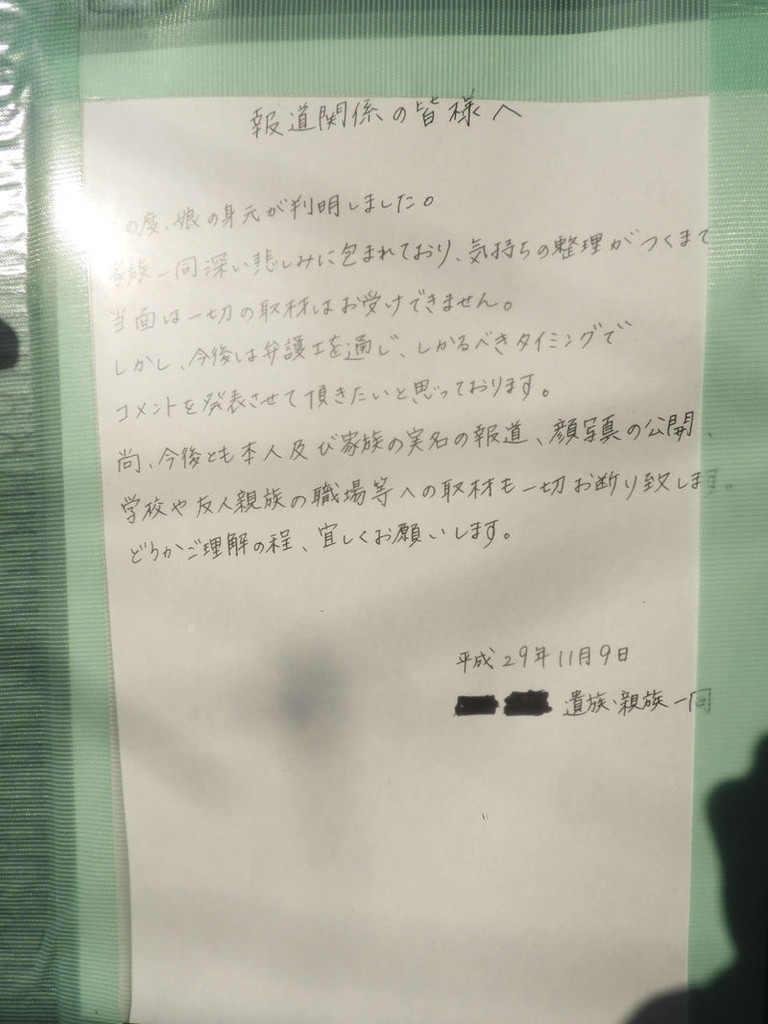 報道関係の皆様へ
の度、娘の身元が判明しました。
家族一同深い悲しみに包まれており、気持ちの整理がつくまで
当面は一切の取材はお受けできません。
しかし、今後は弁護士を通じ、しかるべきタイミングで
コメントを発表させて頂きたいと思っております。
尚、今後とも本人及び家族の実名の報道、顔写真の公開、
学校や友人親族の職場等への取材も一切お断り致します。
どうかご理解の程、宜しくお願いします。
平成29年11月9日
遺族・親族一同